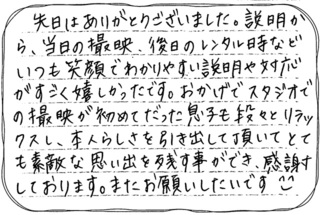 先日はありがとうございました。説明か
ら、当日の撮映、後日のレンタル日時など
いつも笑顔でわかりやすい説明や対応
がすごく嬉しかったです。おかげでスタジオで
の撮映が初めてだった息子も段々とリラッ
クスし、本人らしさを引き出して頂いてとて
も素敵な思い出を残す事ができ、感謝
しております。またお願いしたいです